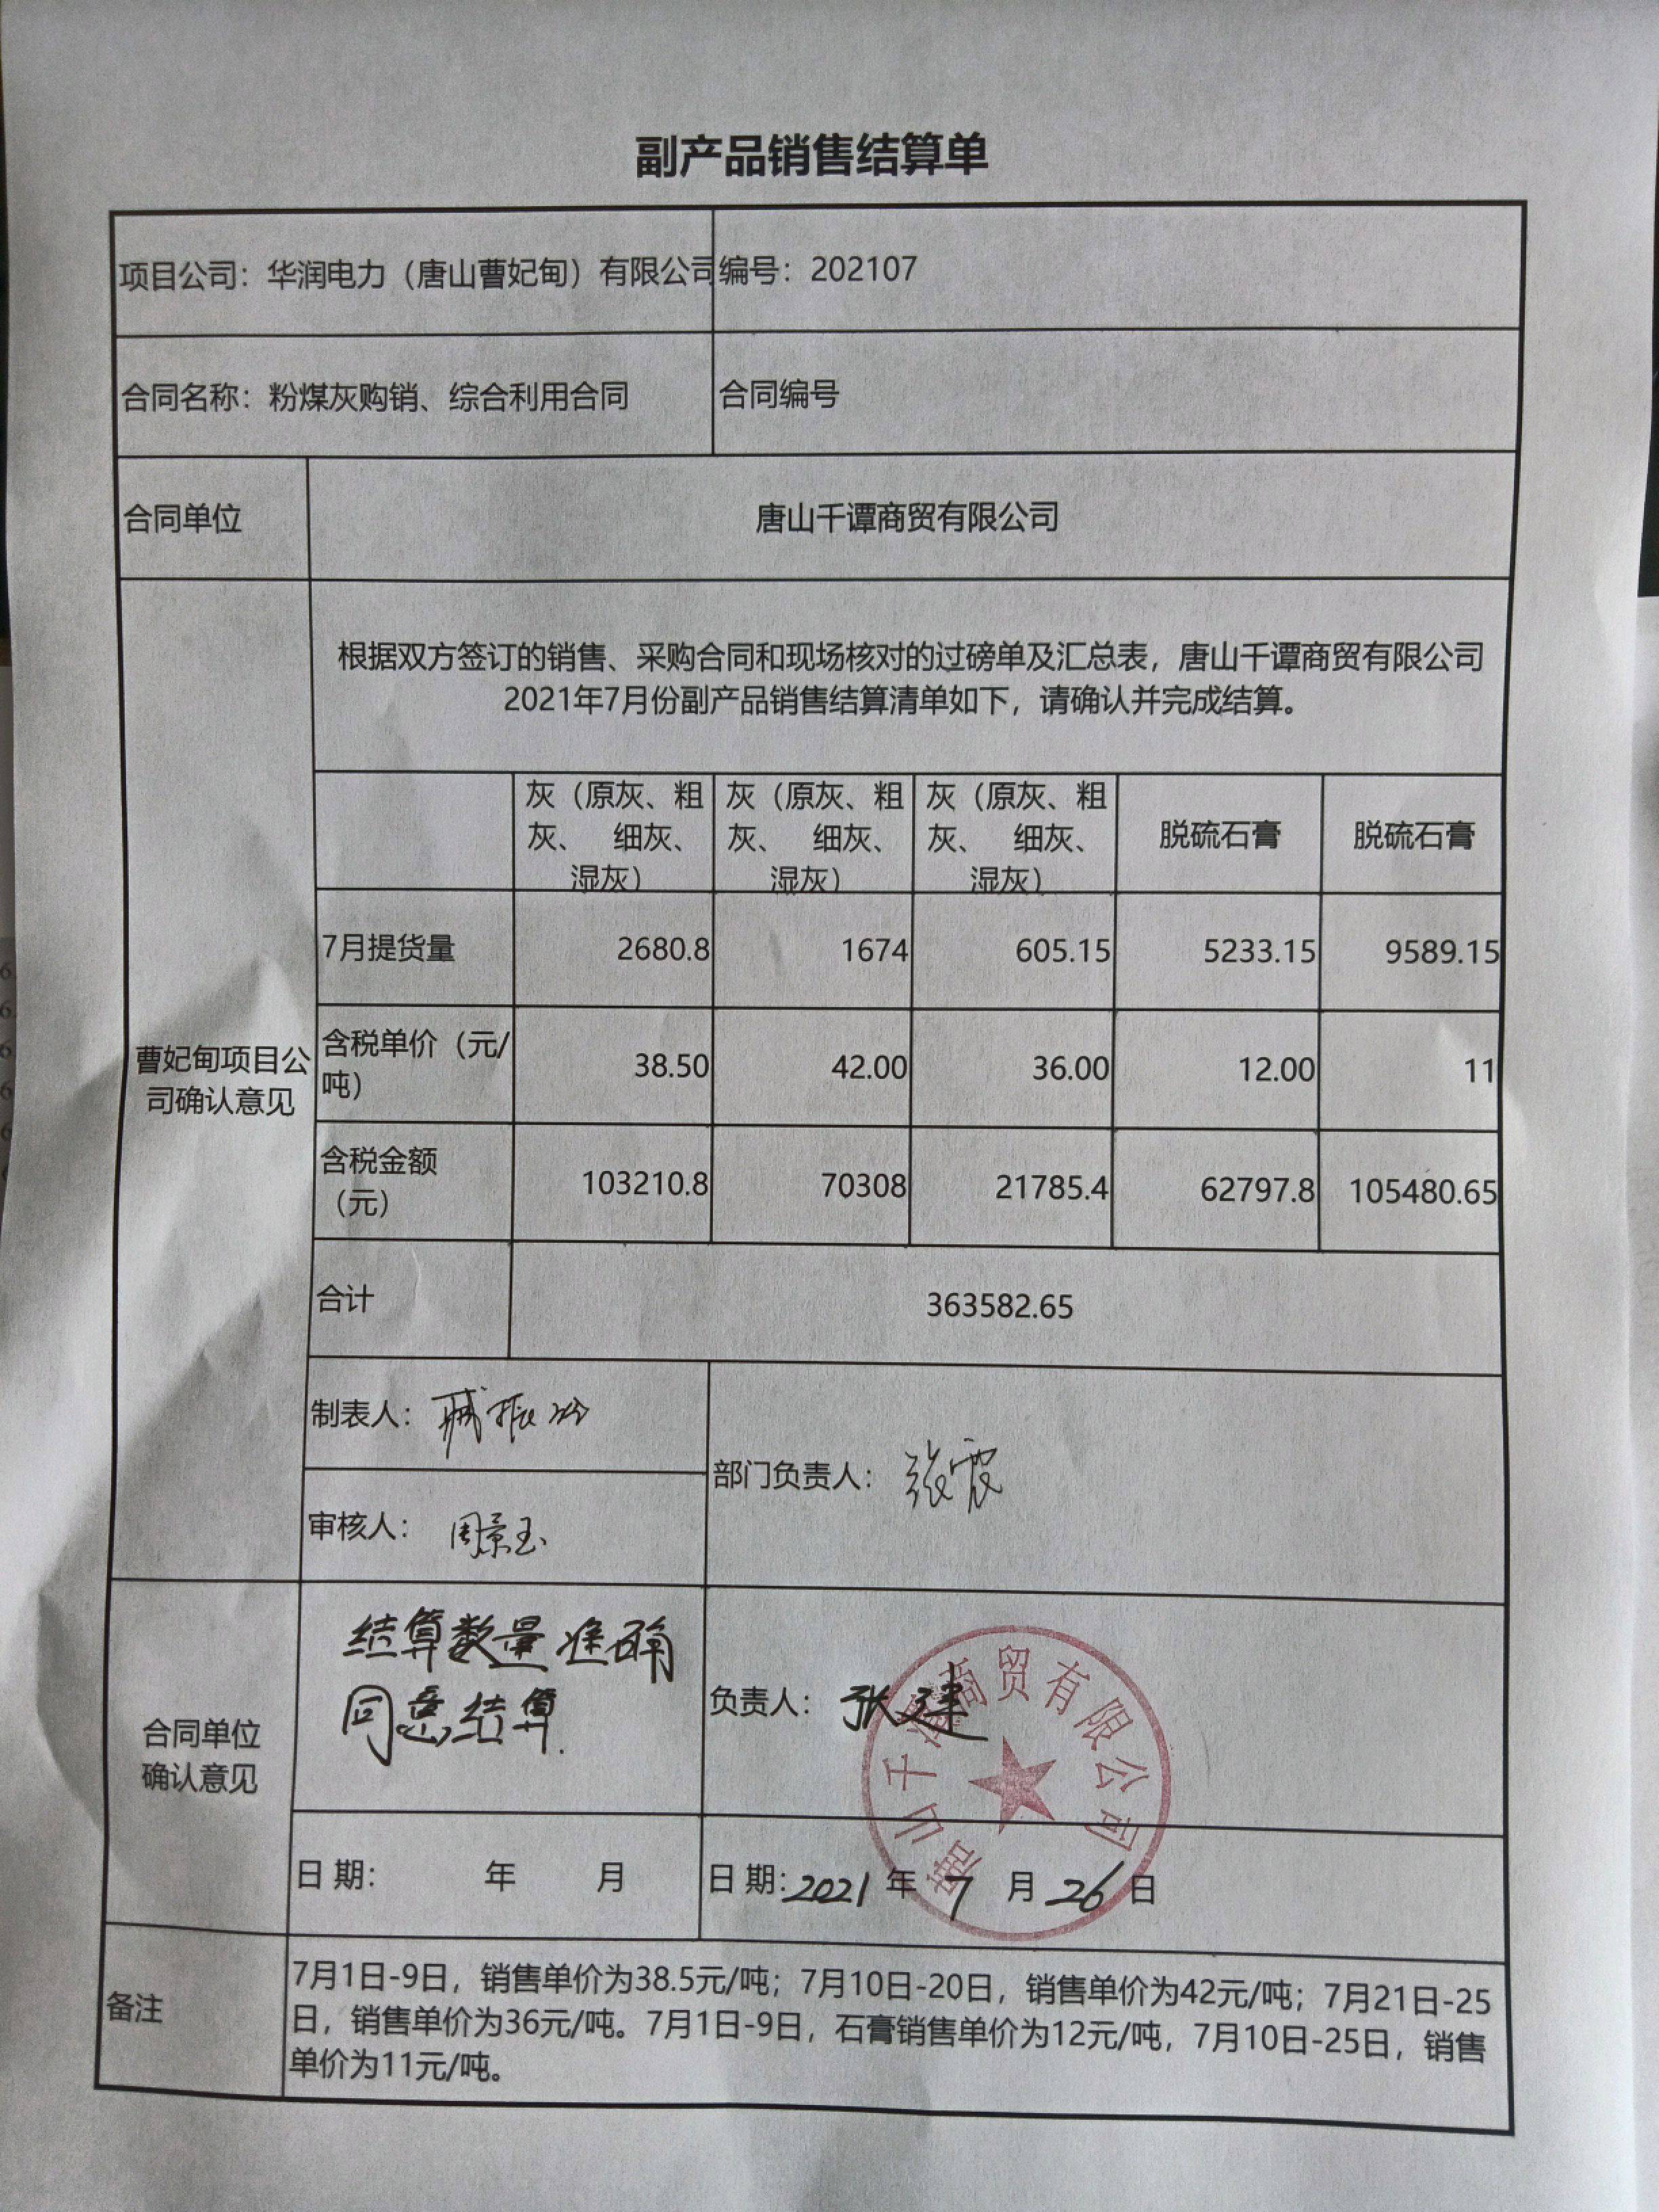 副产品销售结算单
项目公司：华润电力（唐山曹妃甸）有限公司 编号：202107
合同名称：粉煤灰购销、综合利用合同 合同编号
合同单位 唐山千谭商贸有限公司
根据双方签订的销售、采购合同和现场核对的过磅单及汇总表，唐山千谭商贸有限公司
2021年7月份副产品销售结算清单如下，请确认并完成结算。
曹妃甸项目公
司确认意见
灰（原灰、粗 灰（原灰、粗 灰（原灰、粗
灰、 细灰、 灰、 细灰、 灰、 细灰、 脱硫石膏 脱硫石膏
湿灰） 湿灰） 湿灰）
7月提货量 2680.8 1674 605.15 5233.15 9589.15
含税单价（元/
吨） 38.50 42.00 36.00 12.00 11
含税金额
（元） 103210.8 70308 21785.4 62797.8 105480.65
合计 363582.65
制表人：
部门负责人：张震
审核人：周景玉
合同单位
确认意见
结算数量准确
同意结算.
负责人：张建
唐山千谭商贸有限公司
日 期： 年 月 日 期：2021 年 7 月 26 日
备注
7月1日-9日，销售单价为38.5元/吨；7月10日-20日，销售单价为42元/吨；7月21日-25
日，销售单价为36元/吨。7月1日-9日，石膏销售单价为12元/吨，7月10日-25日，销售
单价为11元/吨。